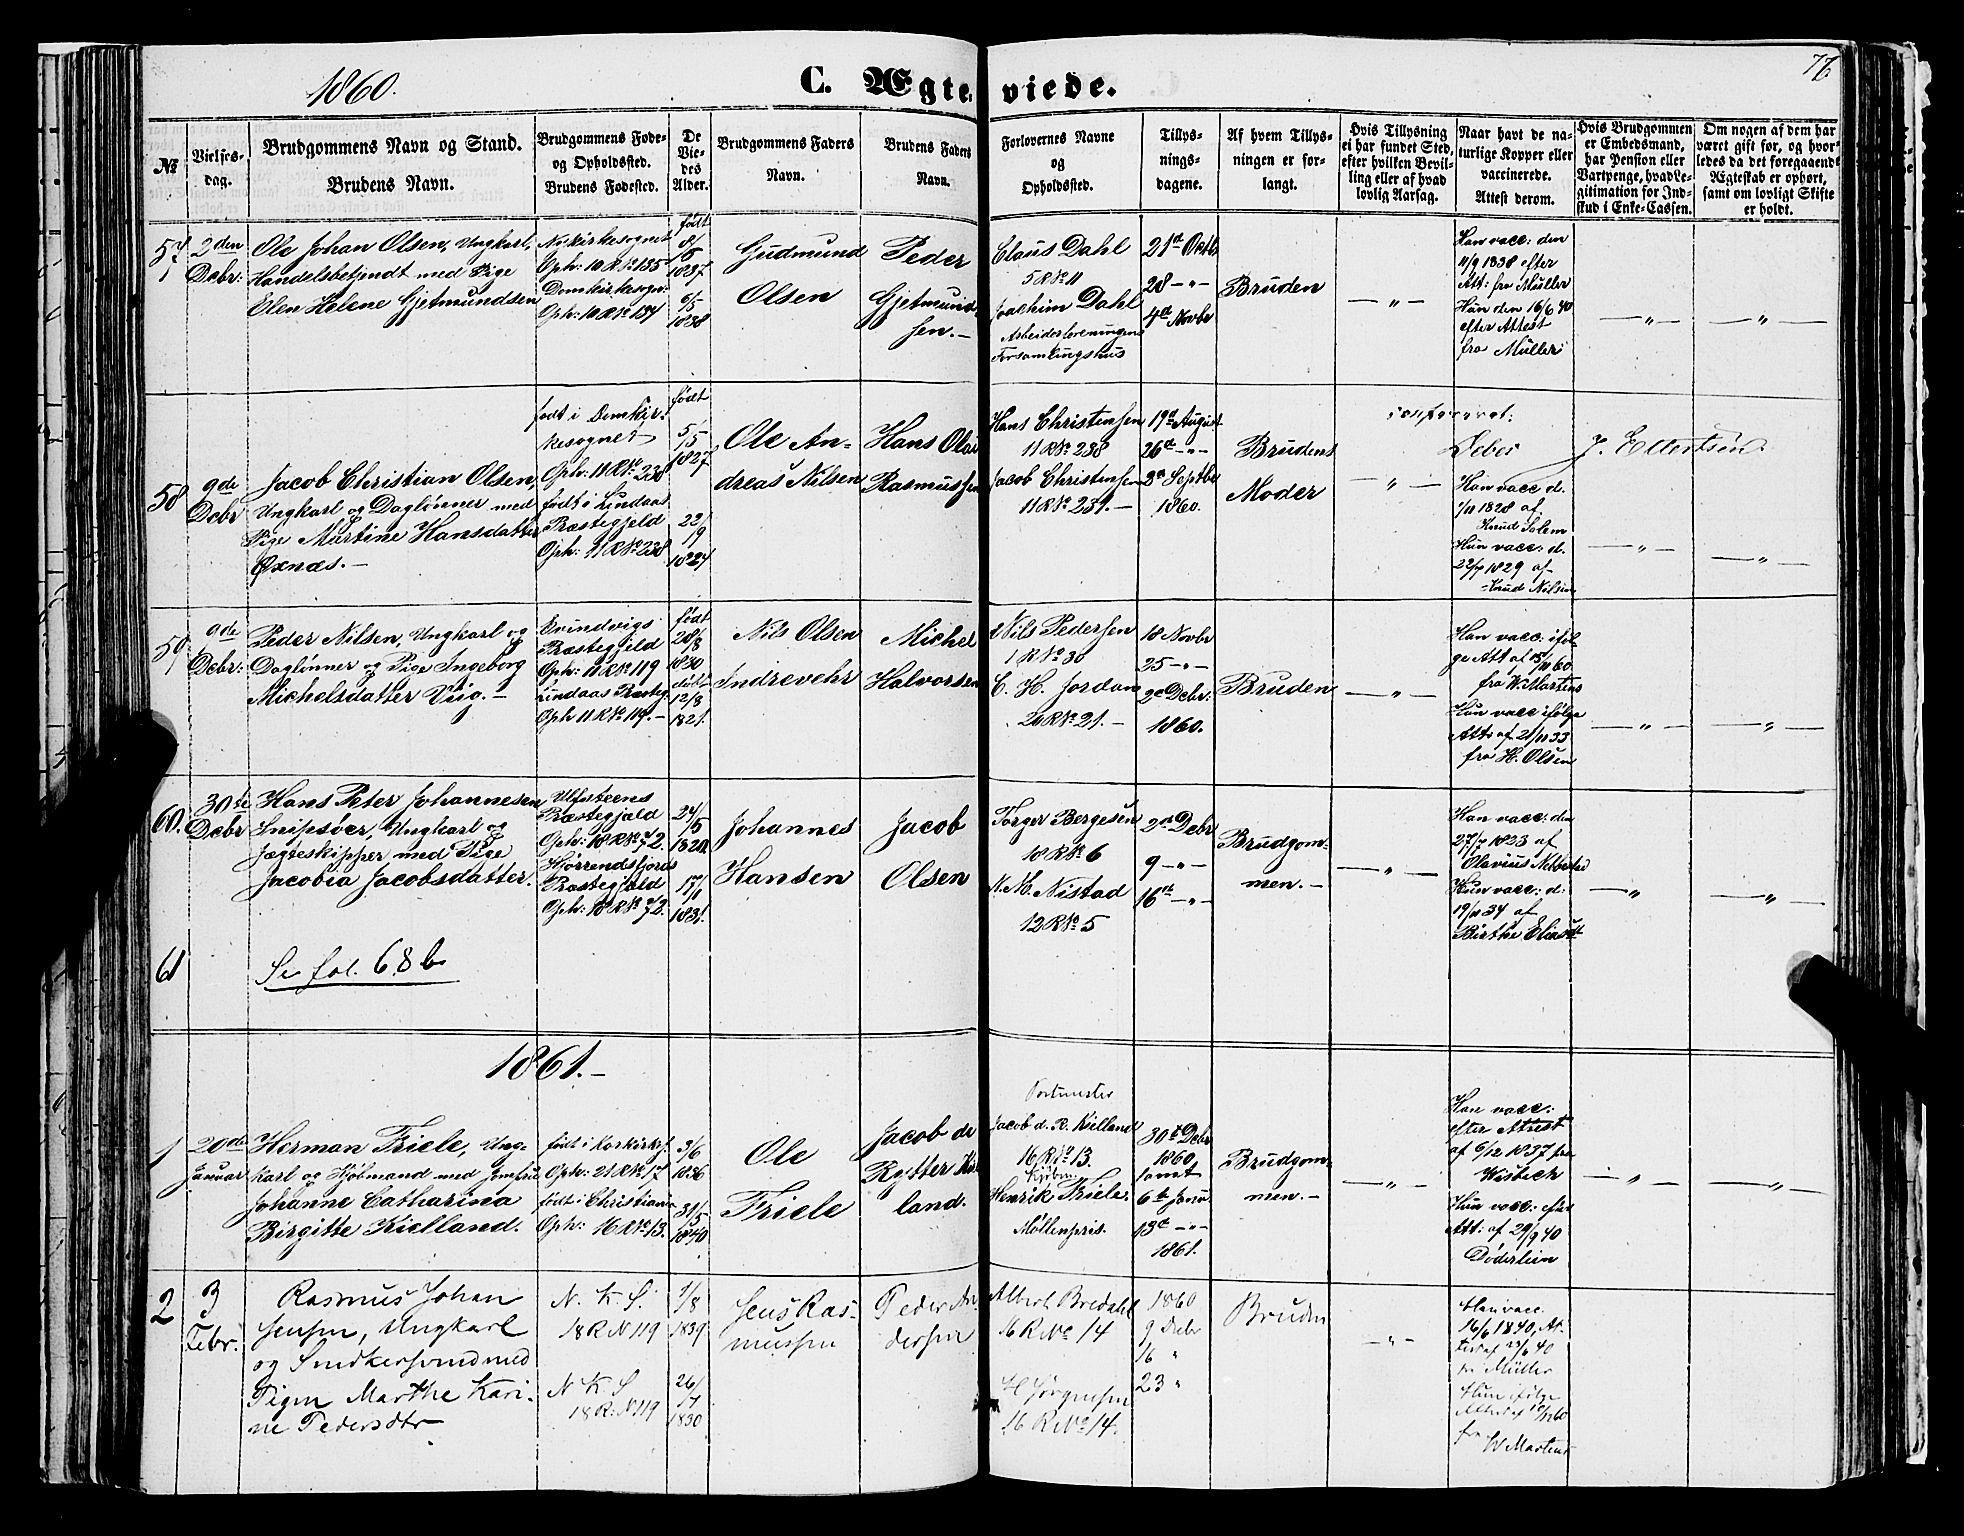 1860.
C. Ægteviede.
76
No
Vielses-
dag.
Brudgommens Navn og Stand.
Brudens Navn.
Brudgommens Føde-
og Opholdssted.
Brudens Fødested.
De
Vie-
des
Alder.
Brudgommens Faders
Navn.
Brudens Faders
Navn.
Forlovernes Navne
og
Opholdssted.
Tillys-
nings-
dagene.
Af hvem Tillys-
ningen er for-
langt.
Hvis Tillysning
ei har fundet Sted,
efter hvilken Bevil-
ling eller af hvad
lovlig Aarsag.
Naar havt de na-
turlige Kopper eller
vaccinerede.
Attest derom.
Hvis Brudgommen
er Embedsmand,
har Pension eller
Vartpenge, hvad Le-
gitimation for Ind-
skud i Enke-Cassen.
Om nogen af dem har
været gift før, og hvor-
ledes da det foregaaende
Ægteskab er ophørt,
samt om lovligt Skifte
er holdt.
57
2den
Debr:
Ole Johan Olsen, Ungkarl,
Handelsbetjendt med Pige
Elen Helene Gjetmundsen
Nykirkesognet
Oph: 10 R No 135
Domkirkesogn:
Oph: 10 R No 134
født
8/5
1837
6/5
1838
Gudmund
Olsen
Peder
Gjetmund-
sen.-
Claus Dahl
5 R No 11
Joachim Dahl
Arbeiderforeningens
Forsamlingshus
21de Oktb
28 -"-
4de Novbr
Bruden
-"-
Han vacc: den
11/9 1838 efter
Att: fra Müller
Hun den 16/6 40
efter Attest
fra Müller
-"-
-"-
58
9de
Debr
Jacob Christian Olsen,
Ungkarl og Daglønner med
Pige Martine Hansdatter
Øxnæs.-
født i Domkir-
kesognet
Oph: 11 R No 238
født i Lindaas
Præstegjeld
Oph: 11 R No 238
født
5/5
1827
22/9
1824
Ole An-
dreas Nilsen
Hans Olai
Rasmussen
Hans Christensen
11 R No 238
Jacob Christensen
11 R No 231.-
19de August
26de -"-
2de Septbr
1860.
Brudens
Moder
-"-
confereret:
Debes
J. Ellertsen
Han vacc d.
1/11 1828 af
Knud Solem
Hun vacc: d.
22/7 1829 af
Knud Nilsen
-"-
-"-
59
9de
Debr:
Peder Nilsen, Ungkarl og
Daglønner og Pige Ingeborg
Michelsdatter Viig.-
Evindvigs
Præstegjeld
Oph: 11 R No 119
Lindaas Præsteg.
Oph 11 R No 119.-
født
28/8
1830
døbt
12/3
1821.
Nils Olsen
Indrevehr
Michel
Halvorsen
Nils Pedersen
1 R No 30
C. H. Jordan
20 R No 21.-
18 Novbr
25 -"-
2de Debr:
1860.
Bruden
-"-
Han vacc: iføl-
ge Att af 15/11 60.
fra W. Martens
Hun vacc ifølge
Att: af 21/11 33
fra H. Olsen
-"-
-"-
60.
30te
Debr
Hans Peter Johannesen
Snipsøer, Ungkarl og
Jægteskipper med Pige
Jacobia Jacobsdatter.
Ulfsteens
Præstegjeld
Oph: 18 R No 72.
Hørrendsfjords
Præstegjeld
Oph: 18 R No 72.
24/5
1820.
17/11
1831.
Johannes
Hansen
Jacob
Olsen
Torger Bergesen
18 R No 6
N. M. Nistad
12 R No 5
2de Debr
9 -"-
16de -"-
Brudgom-
men.-
-"-
Han vacc: den
27/7 1823 af
Olavius
Hun vacc: d:
19/11 34 af
Birthe Eliasdt
-"-
-"-
61
Se fol. 68 b
1861.-
1
20de
Januar
Herman Friele, Ung-
karl og Kjøbmand med Jomfru
Johanne Catharina
Birgitte Kielland.
født i Korskirkes.
Oph: 21 R No 17
født i Christiania
Oph: 16 R No 13.
3/6
1836
31/5
1840
Ole
Friele
Jacob de
Rytter Kiel-
land.
Jacob d. R. Kielland
16 R No 13.
Kjøbm:
Henrik Friele.
Møllenpris.
30te Debr
1860,
samt
6te Janu
13de -"-
1861.
Brudgom-
men.-
-"-
Han vacc:
efter Attest
af 6/12 1837 fra
Wisbech
Hun vacc: efter
Att: af 29/9 40
Døderlein
-"-
-"-
2
3
Febr:
Rasmus Johan
Jensen, Ungkarl
og Snedkersvend med
Pigen Marthe Kari-
ne Pedersdtr
N. K. S.
18 R N 119
N. K. S
18 R: N 119
1/8
1839
26/4
1830
Jens Ras-
mussen
Peder An-
dersen
Albert Bredahl
16 R No 14
H Jørgensen
16 R No 14.
1860
9 Debr
16 "
23 "
Bruden
-"-
Han vacc.
16/6 1840, At-
test af 23/6 40
Müller
Hun ifølge
Attest af 10/12 60
fra
W Martens